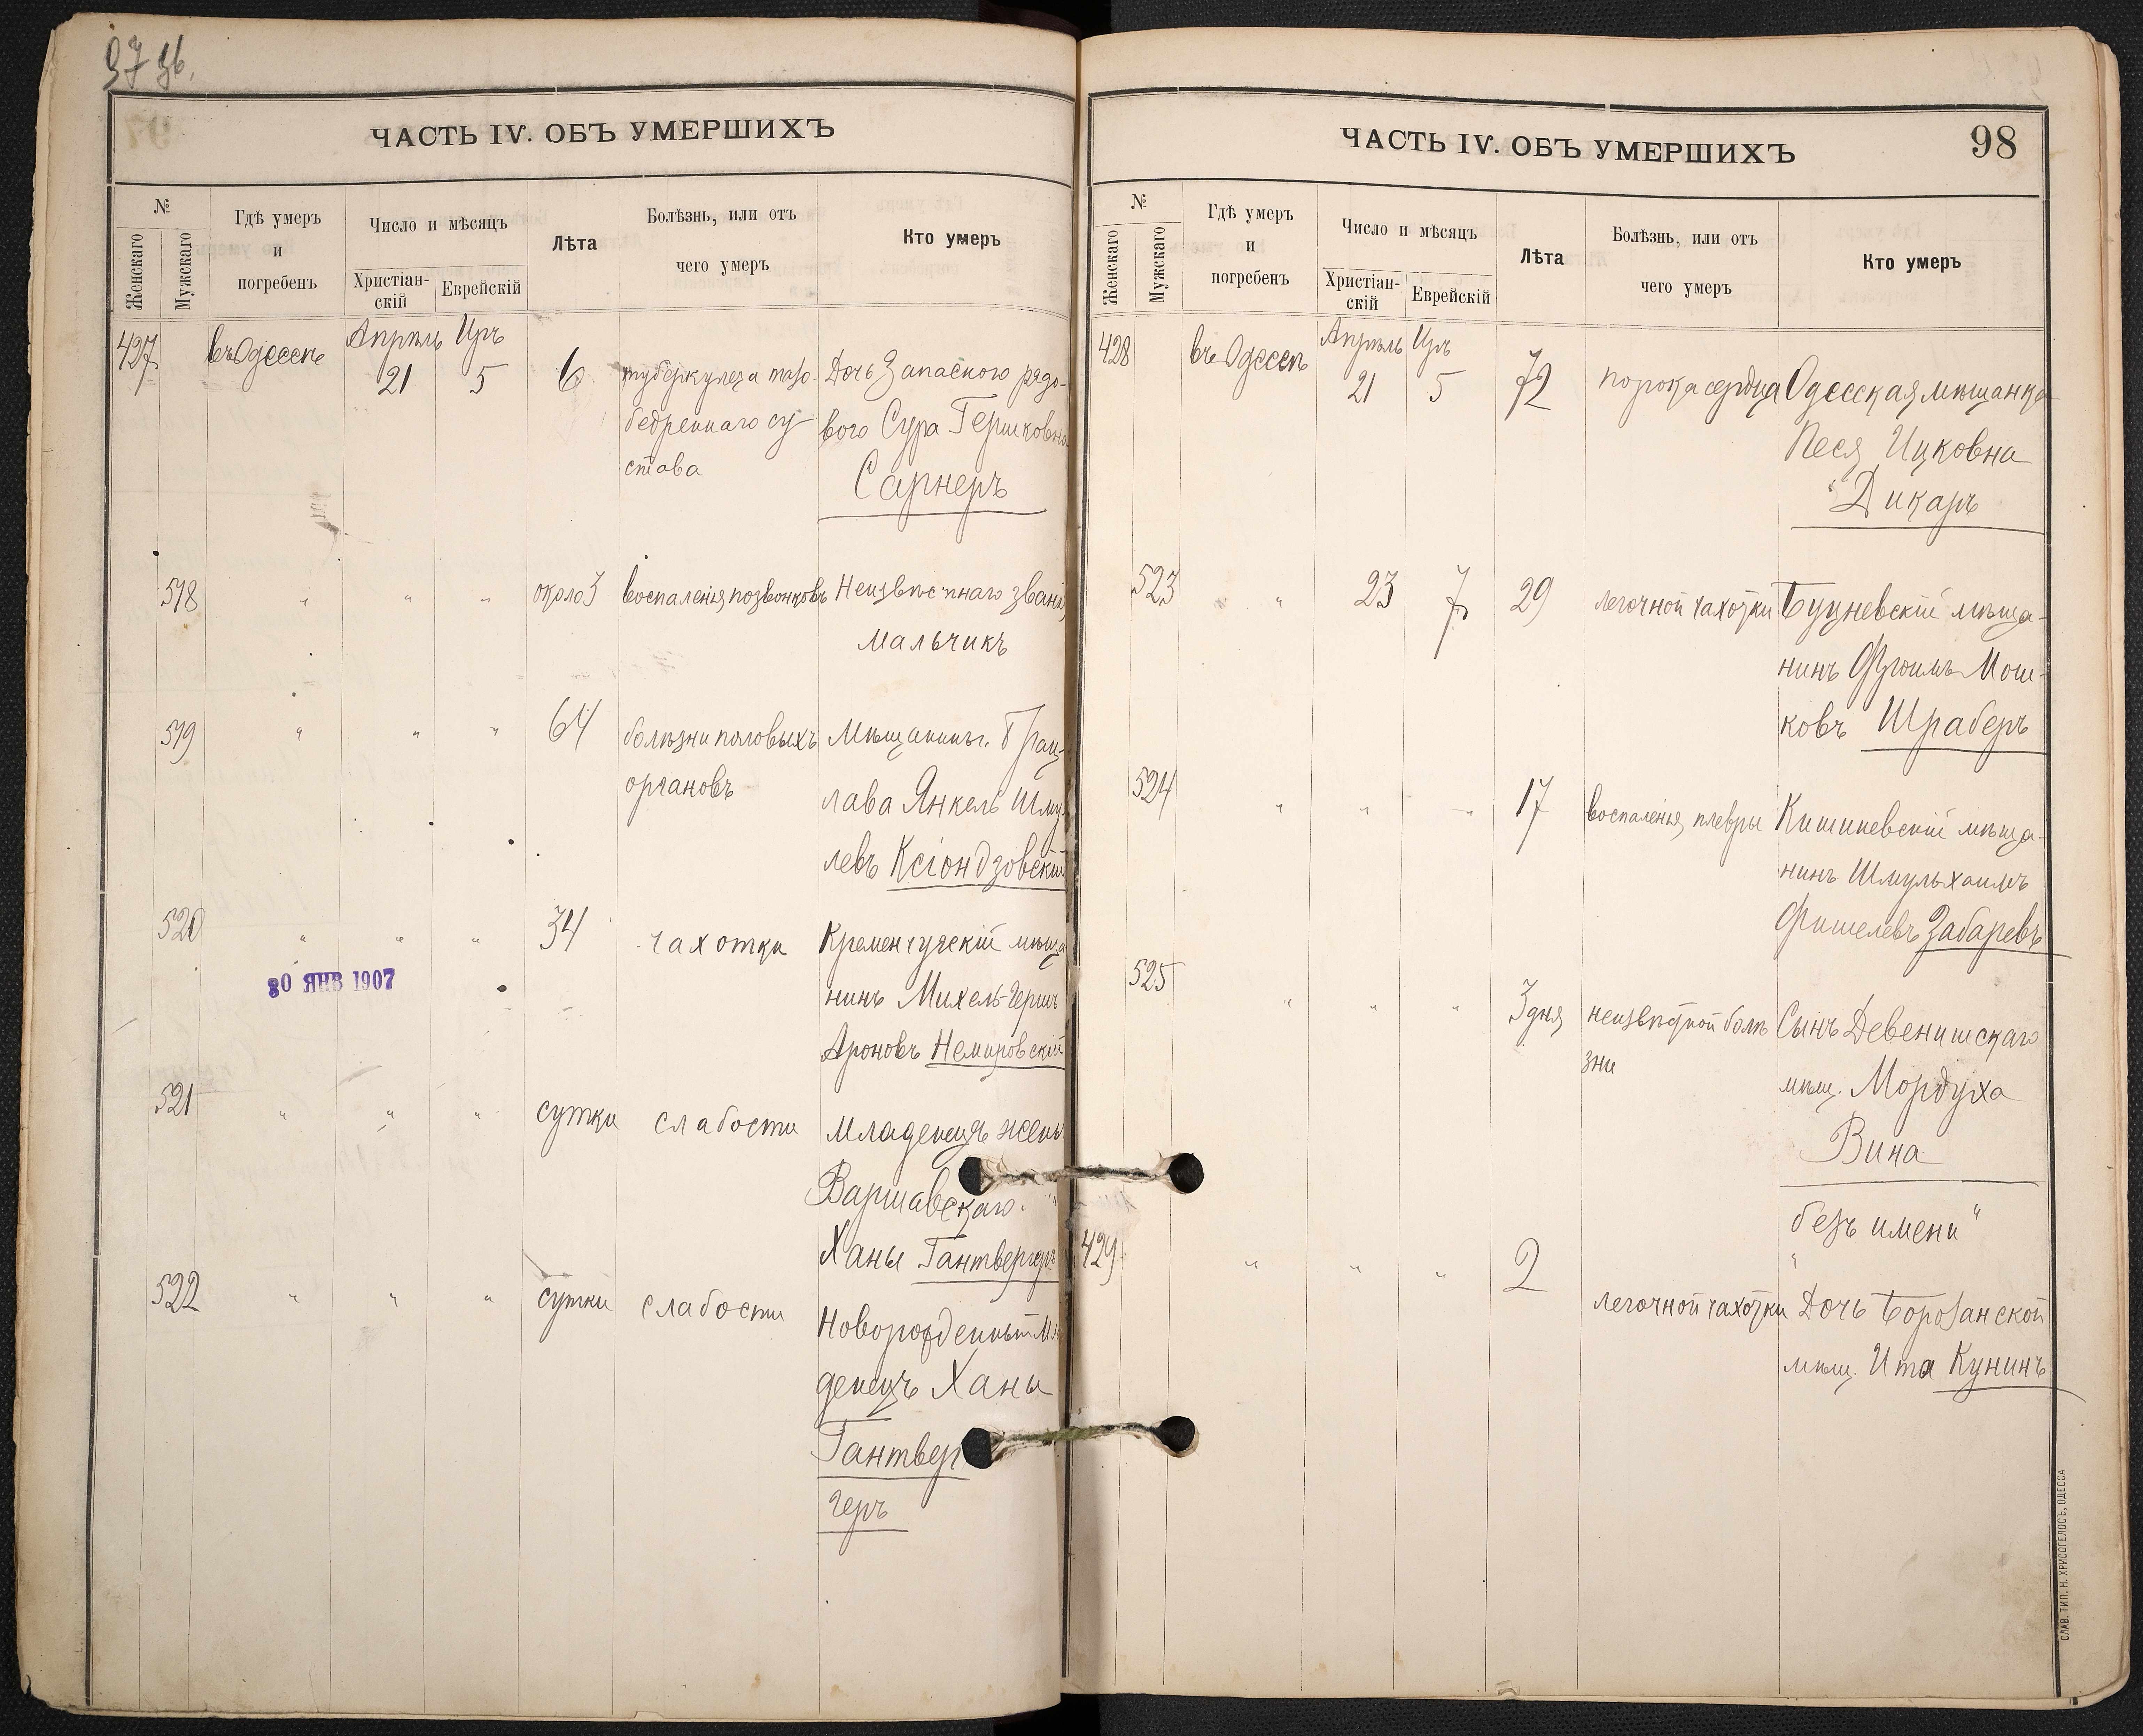 97 об.
ЧАСТЬ IV. ОБЪ УМЕРШИХЪ
№
Женскаго
Мужскаго
Гдѣ умеръ
и
погребенъ
Число и мѣсяцъ
Христіан-
скій
Еврейскій
Лѣта
Болѣзнь, или отъ
чего умеръ
Кто умеръ
427 въ Одессѣ Апрѣль Иръ
21 5 6 туберкулеза тазо- Дочь Запасного рядо-
бедреннаго су- вого Сура Гершковна
става Сарнеръ
518 " " " около 3 воспаленія позвонковъ Неизвѣстнаго званія
мальчикъ
519 " " " 64 болѣзни половыхъ Мѣщанинъ г. Брац-
органовъ лава Янкель Шму-
левъ Ксіондзовскій
520 " " " 34 чахотки Кременчугскій мѣща
30 ЯНВ 1907
нинъ Михель-Герш
Ароновъ Немировскій
521 " " " сутки слабости младенецъ жены
Варшавскаго "
Ханы Гантвергеръ
522 " " " сутки слабости Новорожденный Мла
денецъ Ханы
Гантвер
геръ
ЧАСТЬ IV. ОБЪ УМЕРШИХЪ
98
№
Женскаго
Мужскаго
Гдѣ умеръ
и
погребенъ
Число и мѣсяцъ
Христіан-
скій
Еврейскій
Лѣта
Болѣзнь, или отъ
чего умеръ
Кто умеръ
428 въ Одессѣ Апрѣль Иръ
21 5 72 порока сердца Одесская мѣщанка
Песя Ицковна
Дикаръ
523 " 23 7 29 легочной чахотки Буцневскій мѣща-
нинъ Фроимъ Мош-
ковъ Шраберъ
524 " " " 17 воспаленія плевры Кишиневскій мѣща-
нинъ Шмуль Хаимъ
Фишелевъ Забаревъ
525 " " " 3 дня неизвѣстной болѣ Сынъ Девенишскаго
зни мѣщ. Мордуха
Вина
безъ имени"
429 " " " 2 легочной чахотки Дочь Борозанской
мѣщ. Ита Кунинъ
СЛАВ. ТИП. Н. ХРИСОГЕЛОСЪ, ОДЕССА